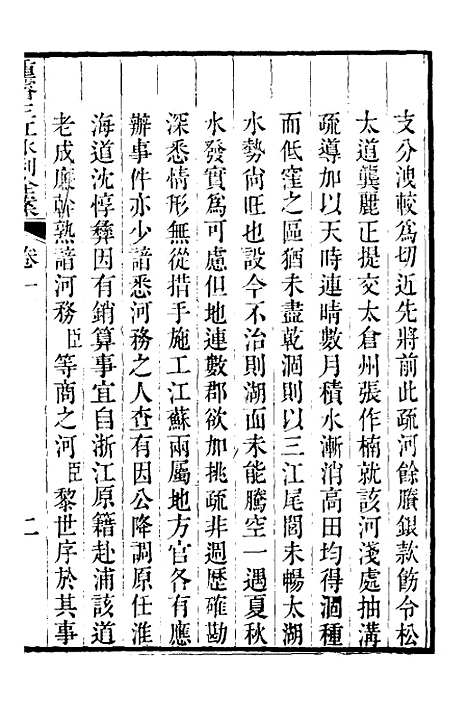 支分洩較為切近先將前此疏河餘賸銀款飭令松
太道龔麗正提交太倉州張作楠就該河淺處抽溝
疏導加以天時連晴數月積水漸消高田均得涸種
而低窪之區猶未盡乾涸則以三江尾閭未暢太湖
水勢尙旺也設今不治則湖面未能騰空一遇夏秋
水發實為可慮但地連數郡欲加挑疏非週歷確勘
深悉情形無從措手施工江蘇兩屬地方官各有應
辦事件亦少諳悉河務之人查有因公降調原任淮
海道沈惇彜因有銷算事宜自浙江原籍赴浦該道
老成廉幹熟諳河務臣等商之河臣黎世序於其事
重濬三江水利全案 卷一 二